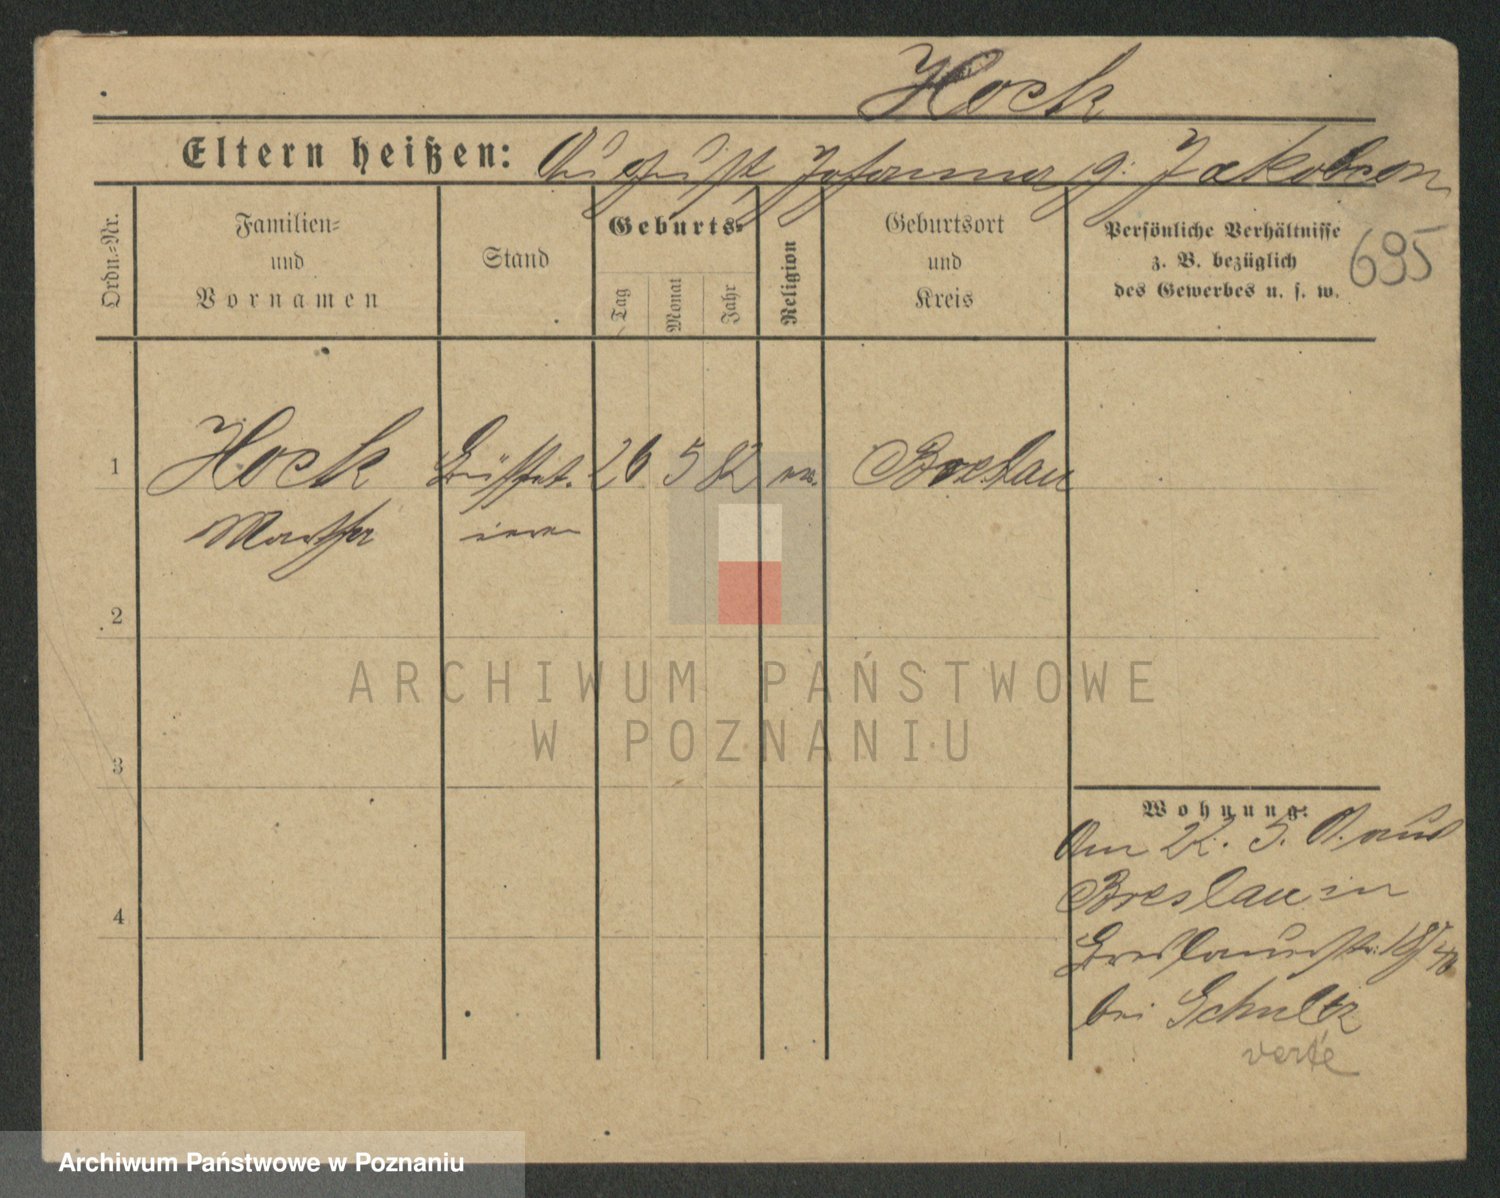 Hock
Eltern heißen: August Johanna g. Jakobson
Ordn.-Nr.
Familien-
und
Vornamen
Stand
Geburts-
Tag
Monat
Jahr
Religion
Geburtsort
und
Kreis
Persönliche Verhältnisse
z. B. bezüglich
des Gewerbes u. s. w.
695
1
Hock
Büffet.
26
5
82
Breslau
Martha
ieren
2
3
4
ARCHIWUM PAŃSTWOWE
W POZNANIU
Wohnung:
Am 22. 5. aus
Breslau in
Breslauerstr.
bei Schultz
verte
Archiwum Państwowe w Poznaniu